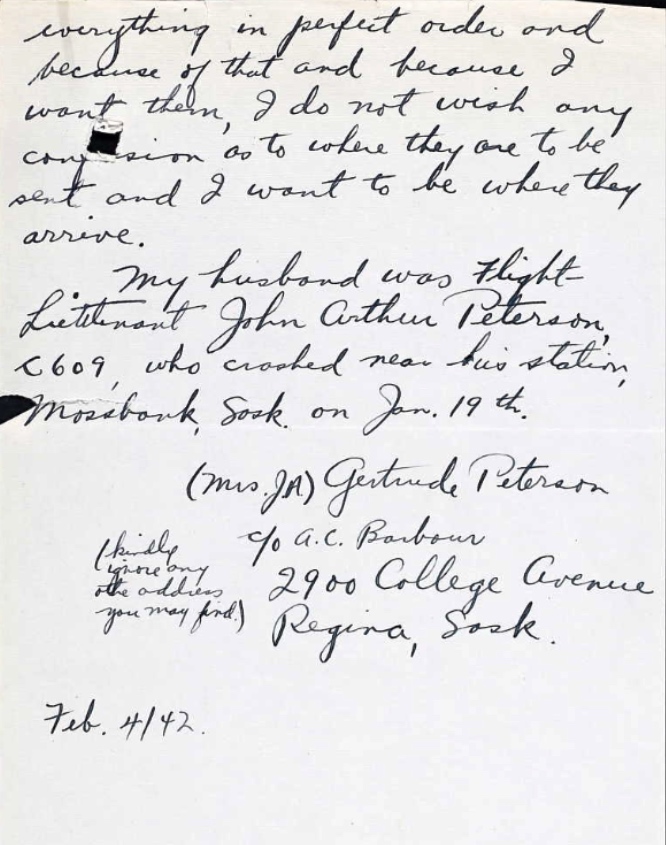 everything in perfect order and
because of that and because I
want them, I do not wish any
confusion as to where they are to be
sent and I want to be where they
arrive.
My husband was Flight-
Lieutenant John Arthur Peterson,
C609, who crashed near his station,
Mossbank, Sask. on Jan. 19th.
(Mrs. JA) Gertrude Peterson
c/o A.C. Barbour
2900 College Avenue
Regina, Sask.
(kindly
ignore any
othe address
you may find.)
Feb. 4/42.